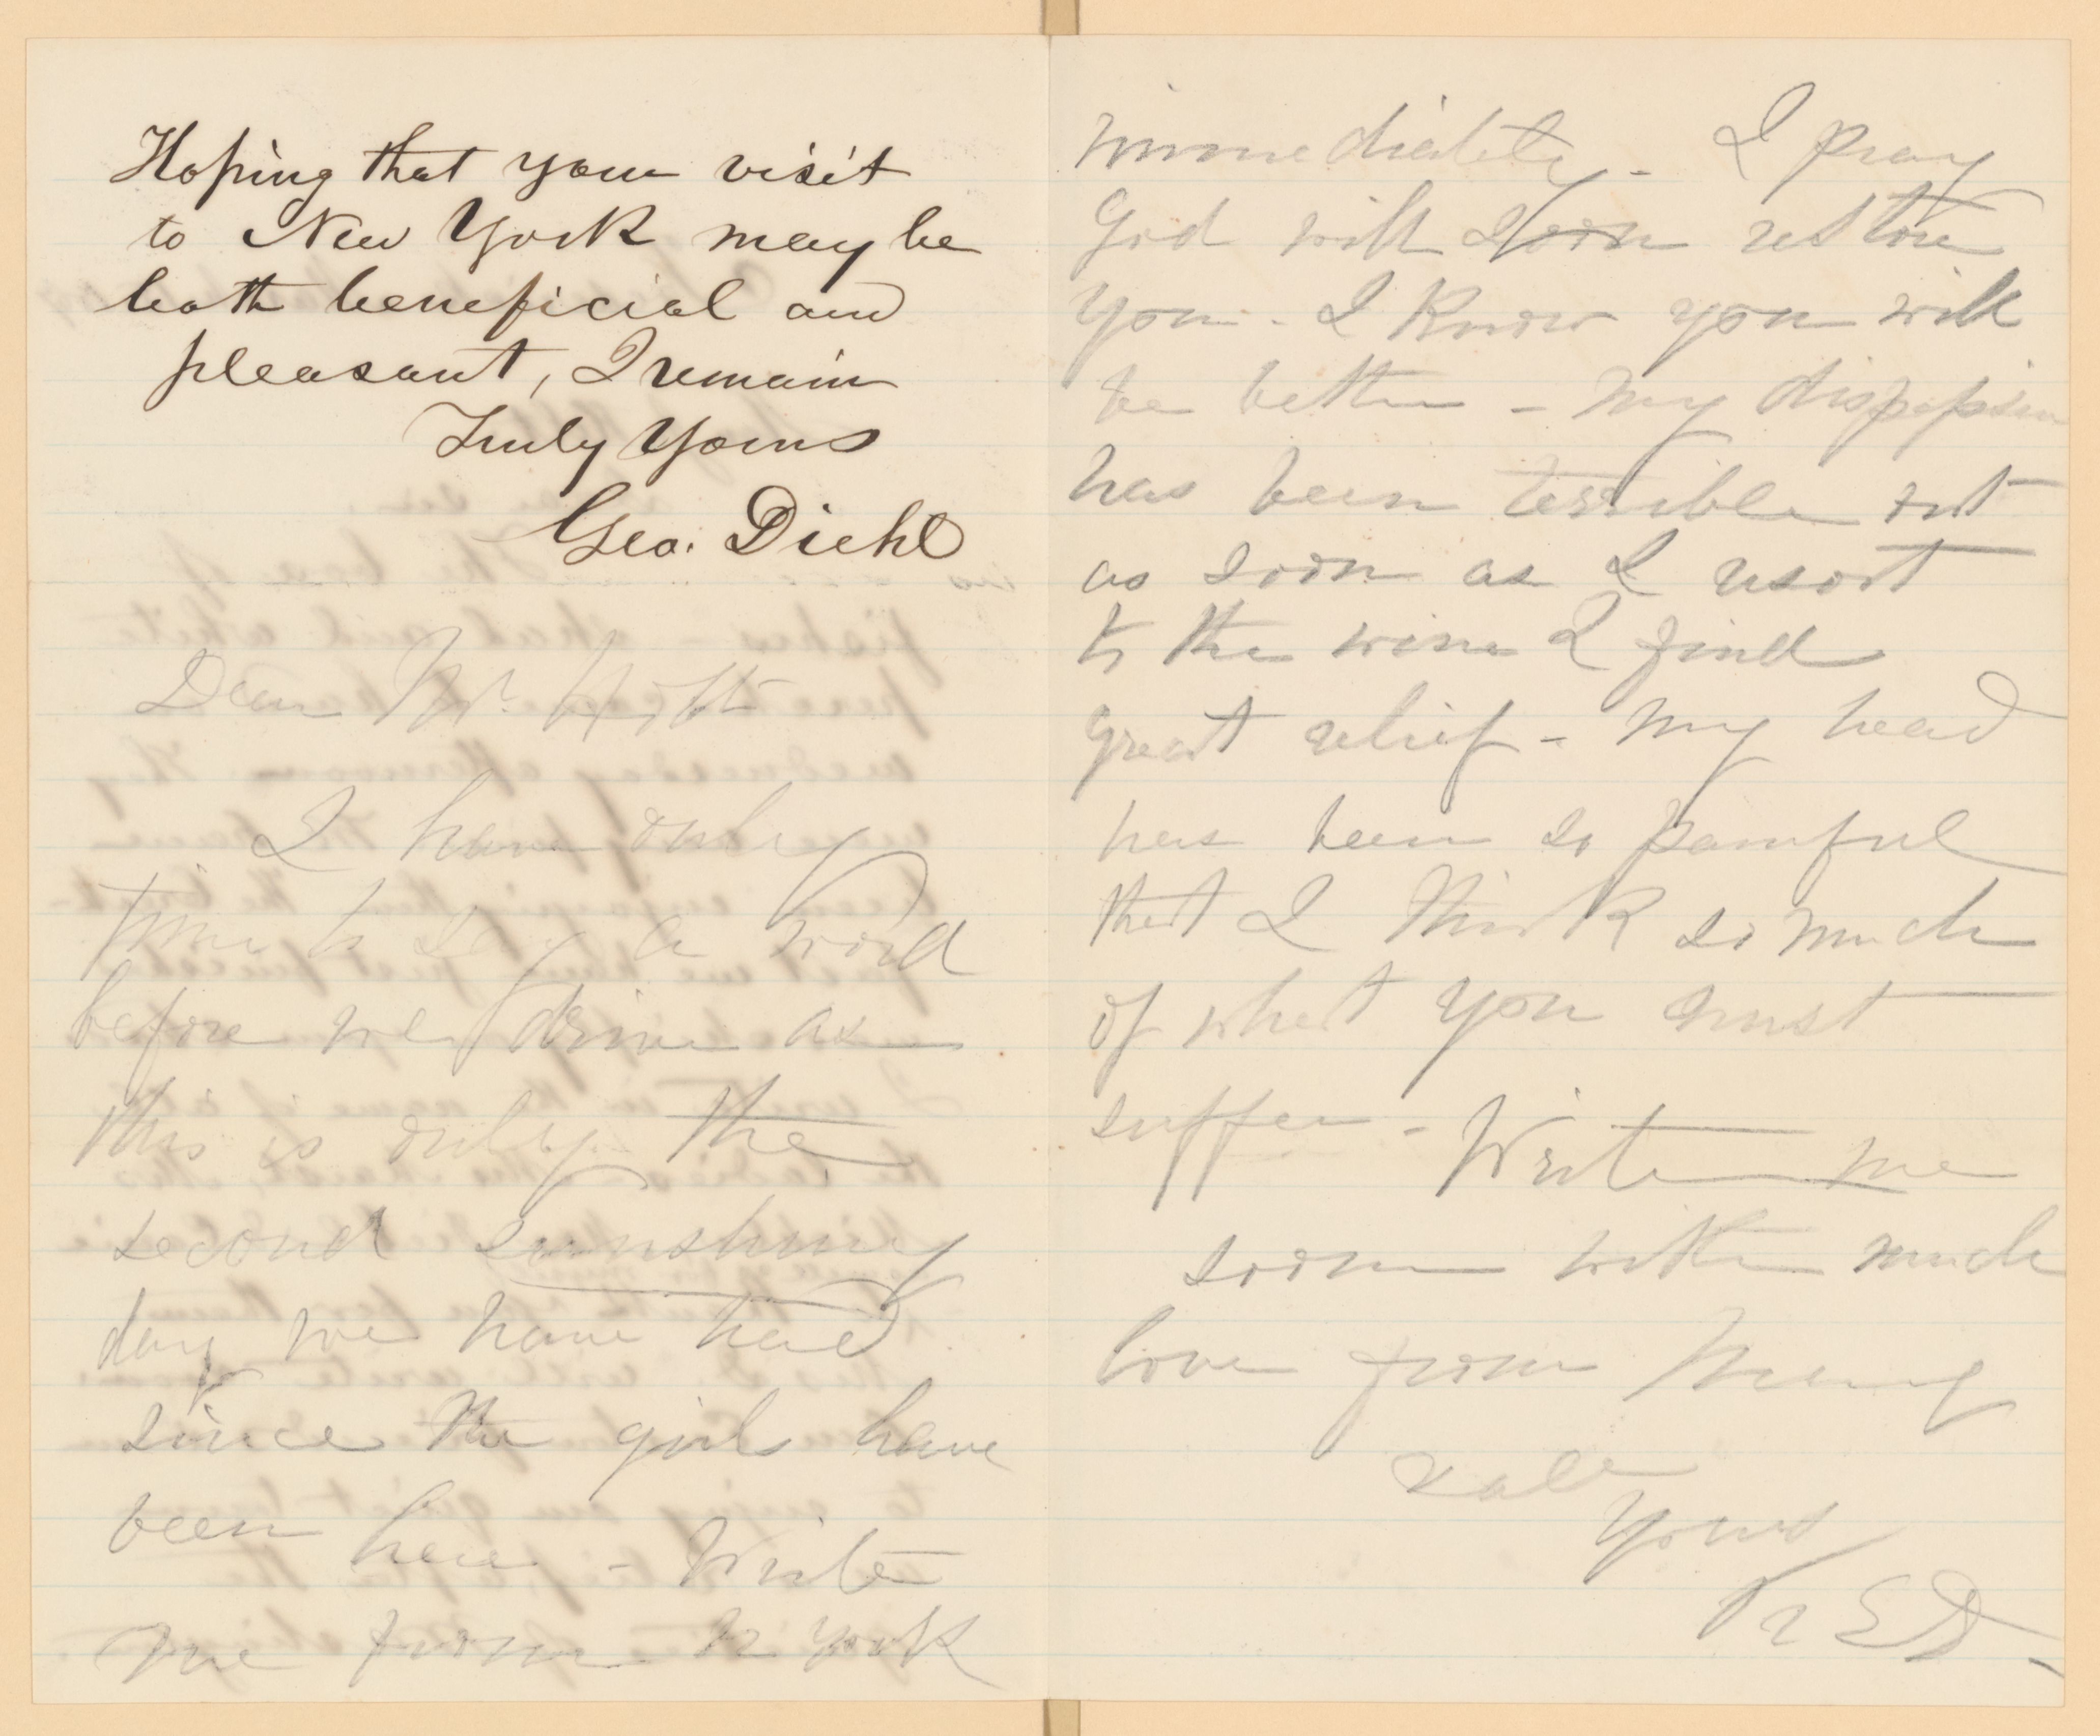 Hoping that your visit
to New York may be
both beneficial and
pleasant, I remain
Truly Yours
Geo. Diehl
Dear Mr. Hott
I have only
time to say a word
before we drive as
this is only the
second sunshiny
day we have had
since the girls have
been here - Write
me from N York
immediately - I pray
God will soon restore
you - I know you will
be better - My
has been terrible but
as soon as I resort
to the wine I find
great relief - My head
has been so painful
that I think so much
of what you must
suffer - Write me
soon with much
love from Many
Yours